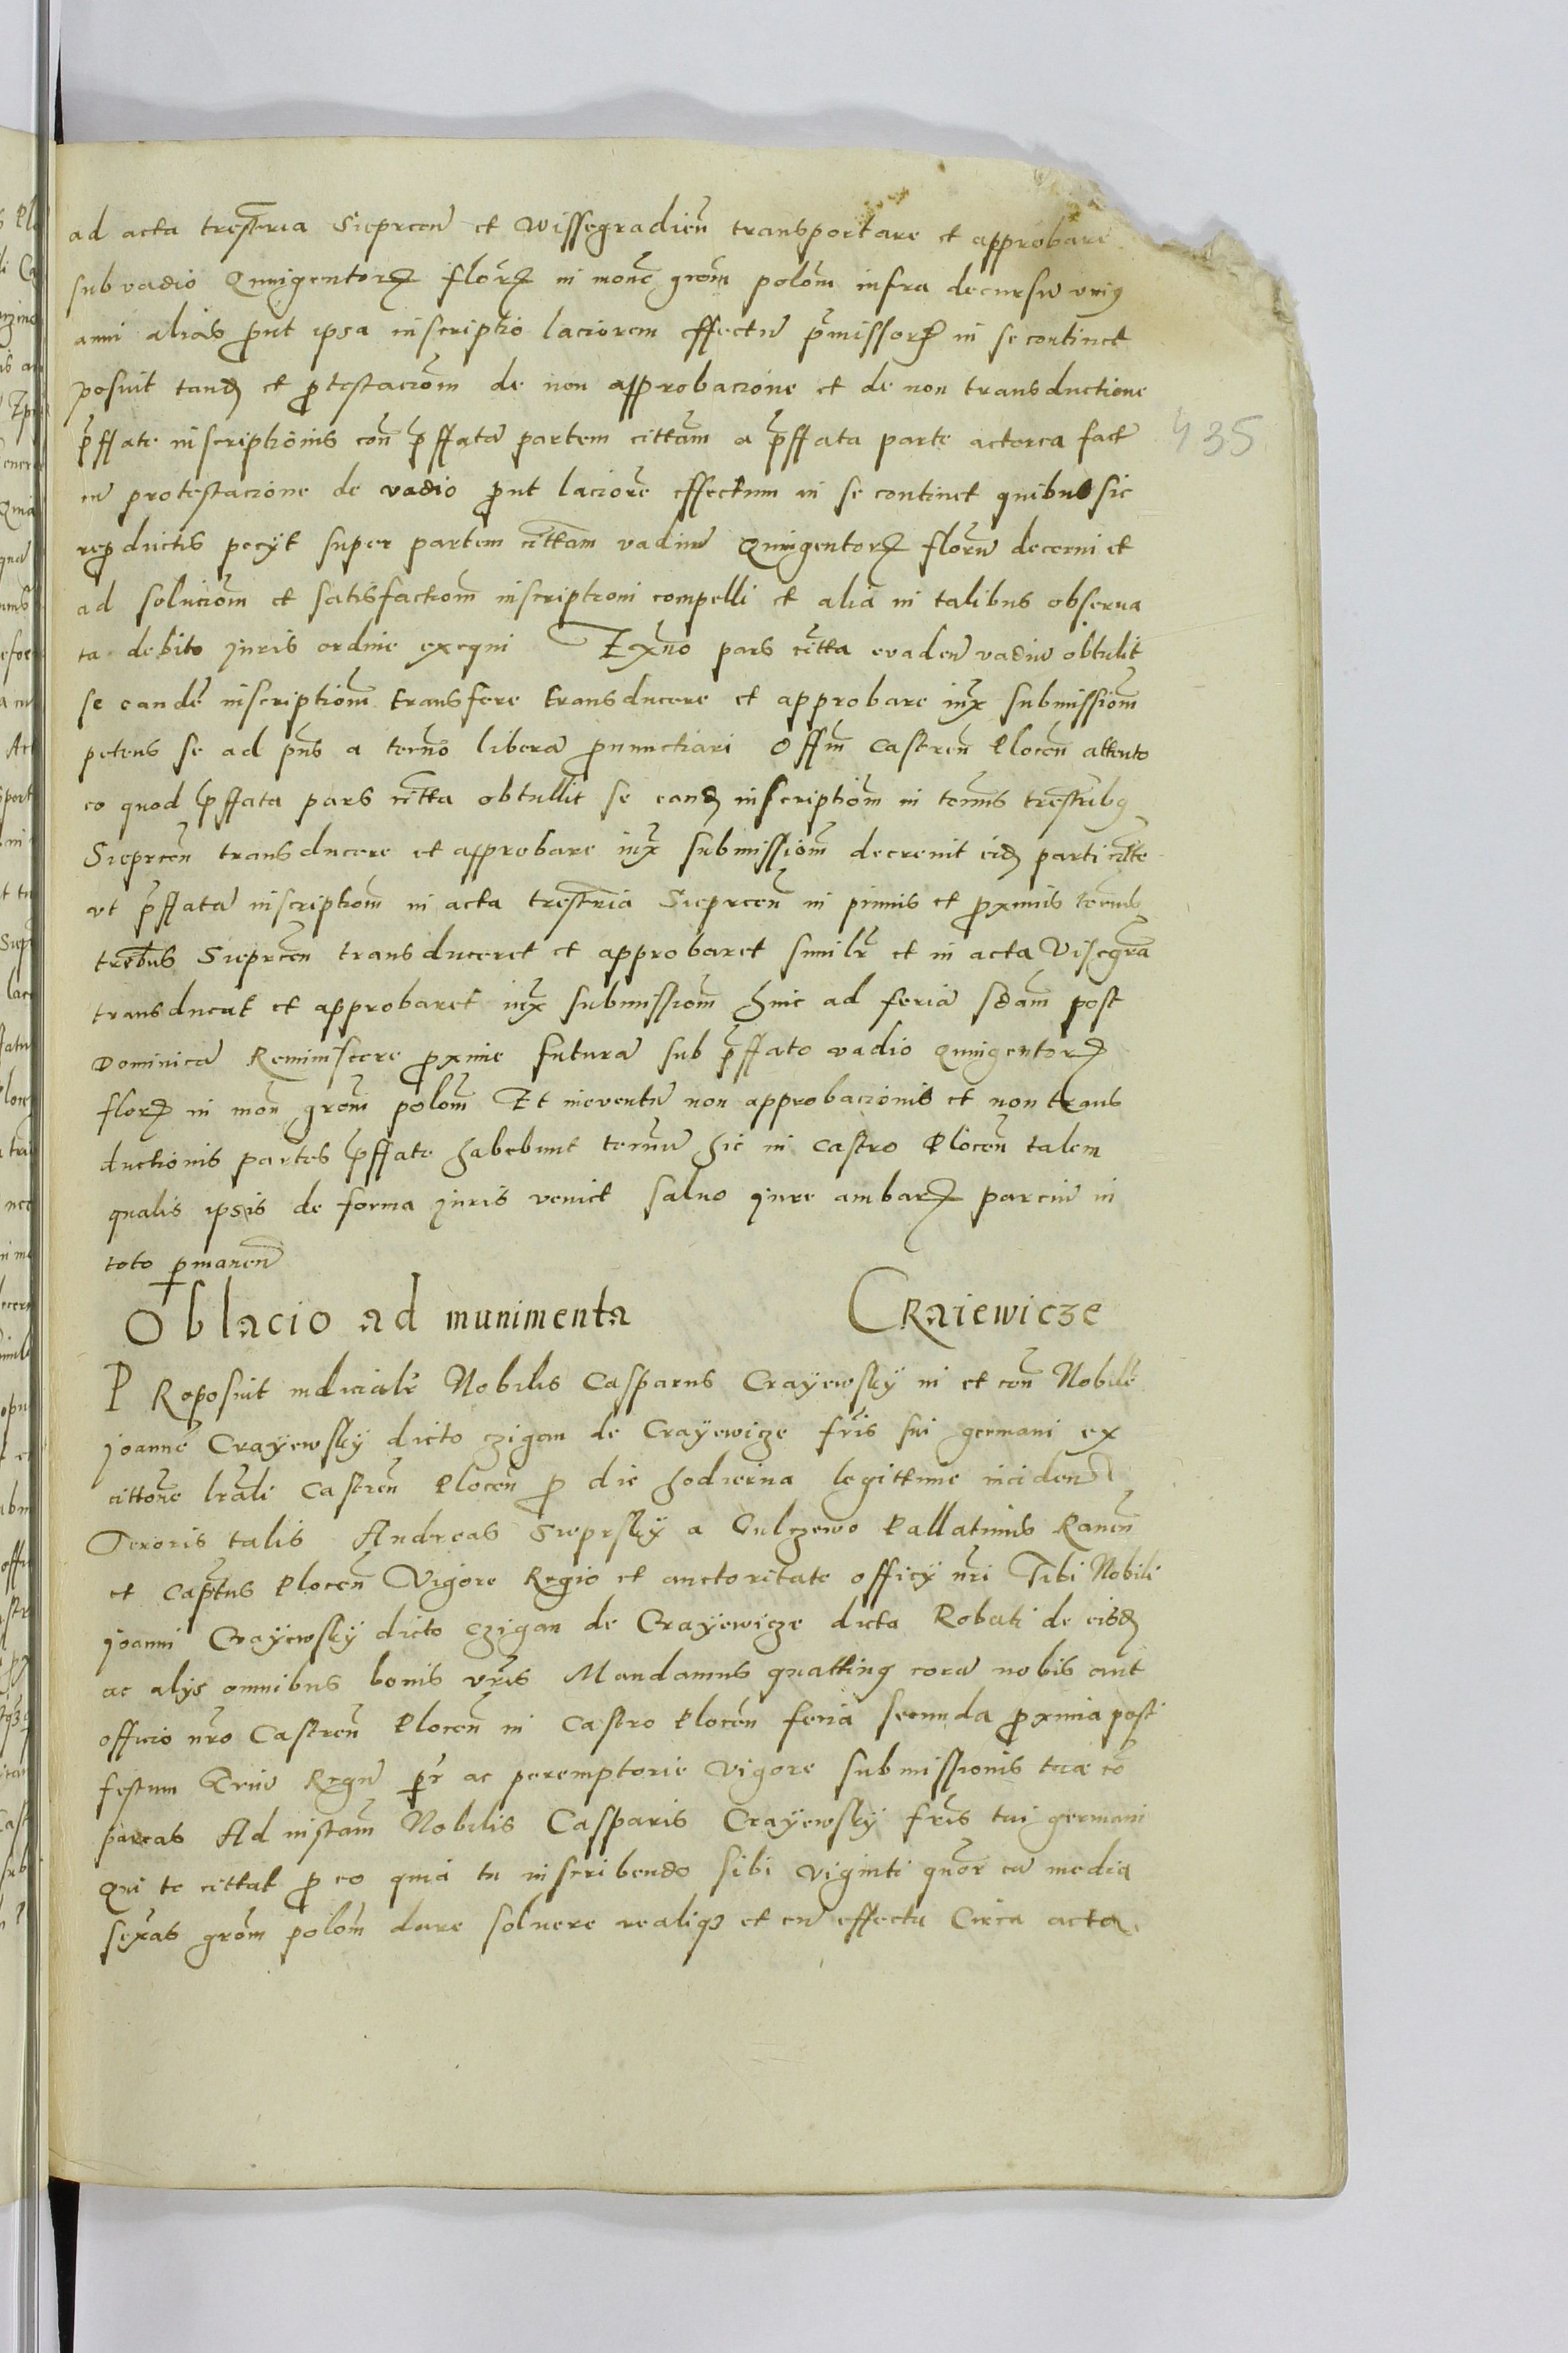 ad acta tresteria Sieprcen et Wissegradien transportare et approbare
sub vadio Quingentorꝝ florꝝ in mone grom polom infra decursu vniꝰ
anni alias ꝓut ipsa inscriptio laciorem effectu p̄missorꝝ in se continet
posuit tandꝫ et ꝓtestaciom de non approbacione et de non transductione
p̄ffate inscriptionis con p̄ffata partem cittam a p̄ffata parte actorea fact
435
cu protestacione de vadio ꝓut laciore effectum in se continet quibus sic
reꝓductis pecyt super partem cittam vadium Quingentorꝝ florum decerni et
ad soluciom et satisfactiom inscriptioni compelli et alia in talibus obserua
ta debito juris ordine exequi Ex aduo pars citta evaden vadiu obtulit
se eande inscriptiom transfere transducere et approbare iux submissiom
petens se ad pns a termo libera ꝓnunctiari Offm Castren Plocen attento
eo quod p̄ffata pars citta obtullit se eandꝫ inscriptiom in termis trestribꝰ
Sieprcen transducere et approbare iux submissiom decreuit eidꝫ parti citte
vt p̄ffata inscriptiom in acta trestria Sieprcen in primis et ꝓximis termis
trebus Sieprcen transduceret et approbaret similr et in acta Visegra
transducat et approbaret iux submissiom hinc ad feria sdam post
Dominica Reminiscere ꝓxime futura sub p̄ffato vadio quingentorꝝ
florꝝ in mon grom polom Et in euentu non approbacionis et non trans
ductionis partes p̄ffate habebunt termu hic in Castro Plocen talem
qualis ipsis de forma juris veniet saluo jure ambarꝝ parciu in
toto ꝑmanen
Oblacio ad munimenta Craiewicze
Proposuit iudicialr Nobilis Casparus Crayewsky in et con Nobile
joanne Crayewsky dicto czigan de Crayewicze fris sui germani ex
cittone lrali Castren Plocen ꝓ die hodierna legittime inciden
Tenoris talis Andreas Sieprsky a Gulczewo Pallatinus Rauen
et Captus Plocen Vigore Regio et auctoritate officy nri Tibi Nobili
joanni Crayewsky dicto czigan de Crayewicze dicta Robati de eisdꝫ
ac alys omnibus bonis vris Mandamus quattinꝰ cora nobis aut
officio nro Castren Plocen in Castro Plocen feria secunda ꝓxima post
festum Triu Regu ꝑr ac peremptorie Vigore submissionis tuæ co
pareas Ad instam Nobilis Casparis Crayewsky fris tui germani
Qui te cittat ꝓ eo quia tu inscribendo sibi viginti quor cu media
sexas grom polom dare soluere realiqꝫ et cu effectu Circa acta